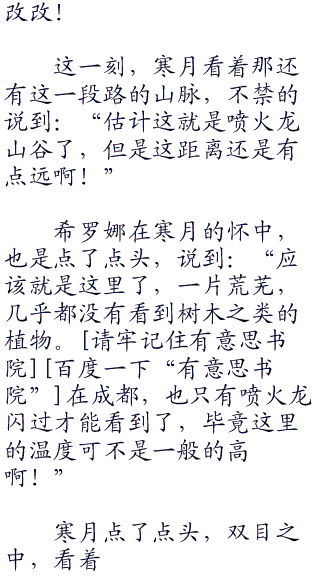 改改！
这一刻，寒月看着那还
有这一段路的山脉，不禁的
说到：“估计这就是喷火龙
山谷了，但是这距离还是有
点远啊！”
希罗娜在寒月的怀中，
也是点了点头，说到：“应
该就是这里了，一片荒芜，
几乎都没有看到树木之类的
植物。[请牢记住有意思书
院][百度一下“有意思书
院”]在成都，也只有喷火龙
闪过才能看到了，毕竟这里
的温度可不是一般的高
啊！”
寒月点了点头，双目之
中，看着